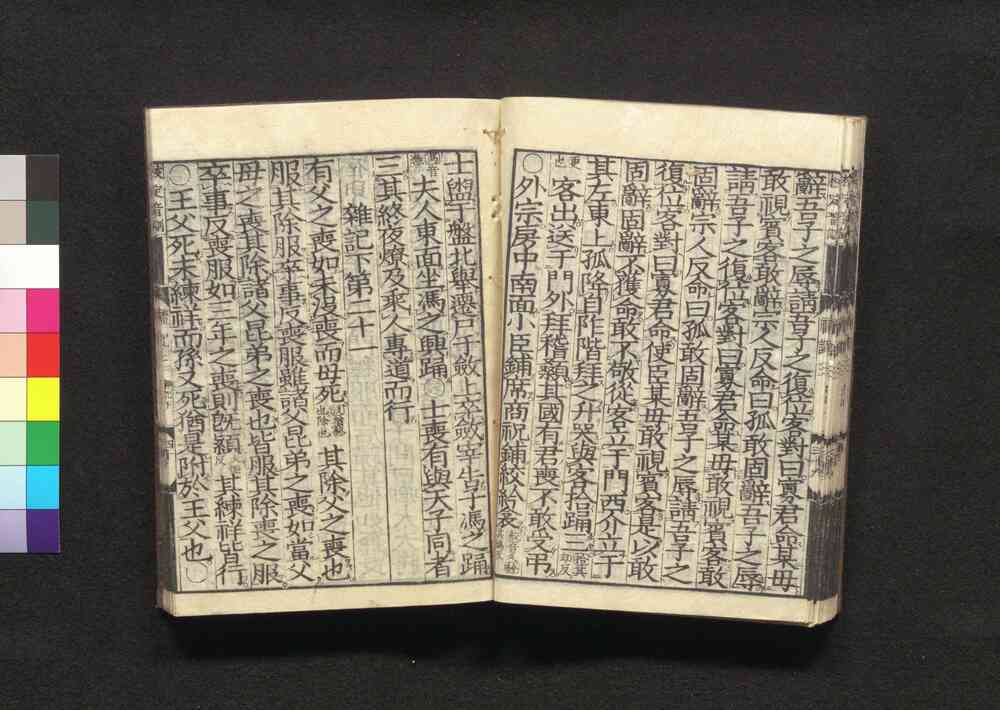 辭吾子之辱請吾子之復位客對曰寡君命某毋
敢視賓客敢辭宗人反命曰孤敢固辭吾子之辱
請吾子之復位客對曰寡君命某毋敢視賓客敢
固辭宗人反命曰孤敢固辭吾子之辱請吾子之
復位客對曰寡君命使臣某毋敢視賓客是以敢
固辭固辭不獲命敢不敬從客立于門西介立于
其左東上孤降自阼階拜之升哭與客拾踊三
客出送于門外拜稽顙其國有君喪不敢受弔
〇外宗房中南面小臣鋪席商祝鋪絞紟衾
士盥于盤北舉遷尸于斂上卒斂宰告子馮之踊
夫人東面坐馮之興踊 士喪有與天子同者
三其終夜燎及乘人專道而行
雜記下第二十一
有父之喪如未沒喪而母死 其除父之喪也
服其除服卒事反喪服雖諸父昆弟之喪如當父
母之喪其除諸父昆弟之喪也皆服其除喪之服
卒事反喪服如三年之喪則既顈 其練祥皆行
〇王父死未練祥而孫又死猶是附於王父也〇